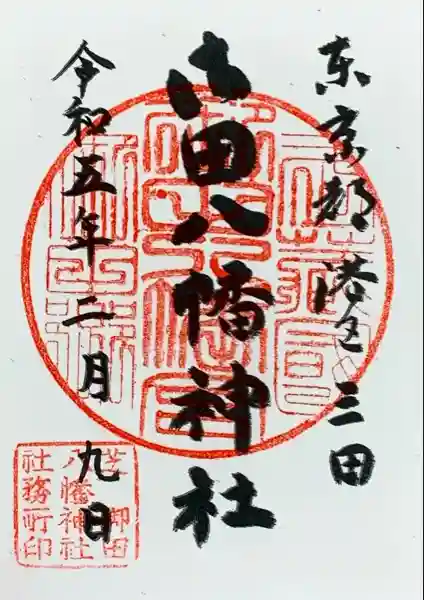 东京都港区三田
御田八幡神社
令和五年二月九日
芝御田
八幡神社
社務所印